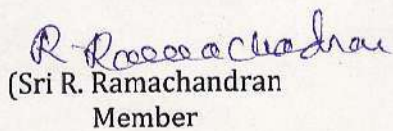 R. Ramachandran
(Sri R. Ramachandran
Member